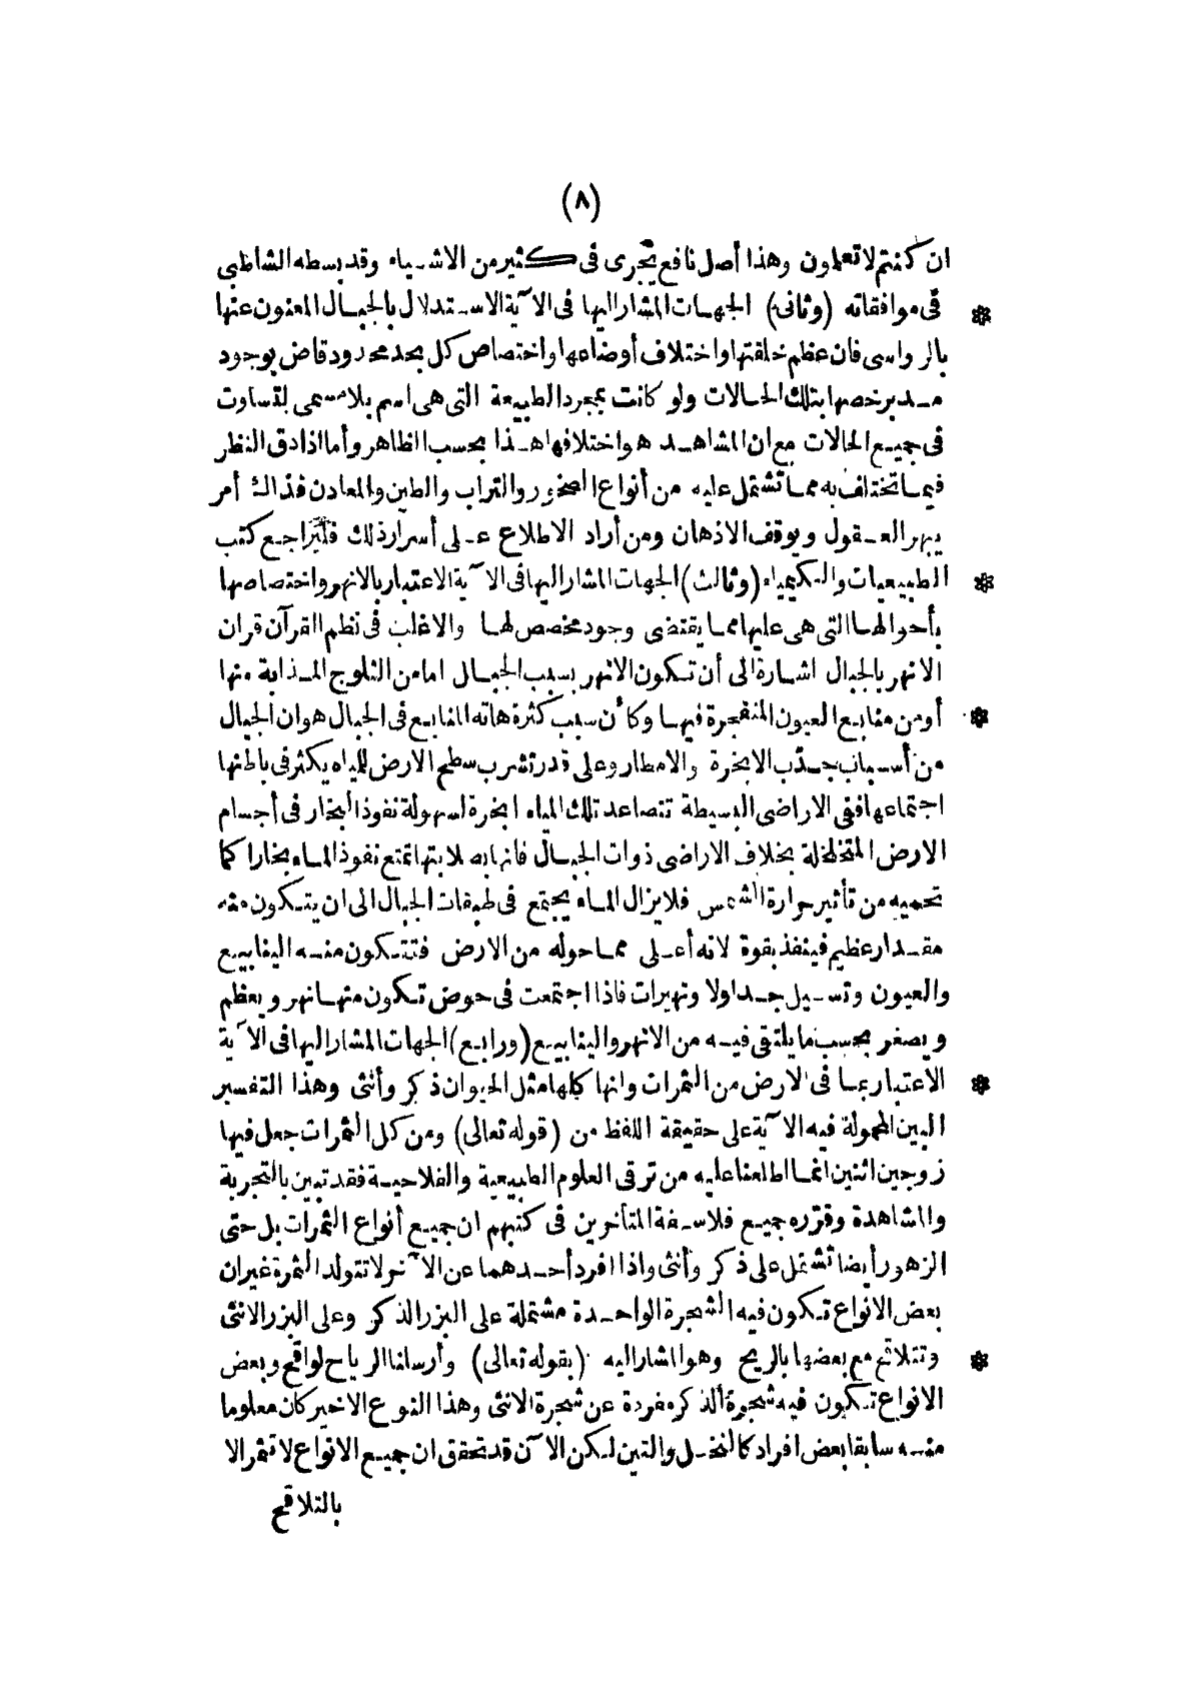 (٨)
ان كنتم لا تعلمون وهذا أصل نافع يجرى فى كثير من الاشياء وقد بسطه الشاطبى
* فى موافقاته (وثانى) الجهات المشار اليها فى الآية الاستدلال بالجبال المعنون عنها
بالرواسى فان عظم خلقتها واختلاف أوضاعها واختصاص كل بحد محدود قاض بوجود
مدبر خصها بتلك الحالات ولو كانت بمجرد الطبيعة التى هى اسم بلا مسمى لتساوت
فى جميع الحالات مع ان المشاهد هو اختلافها هذا بحسب الظاهر وأما اذا دق النظر
فيما تختلف به مما تشتمل عليه من أنواع الصخور والتراب والطين والمعادن فذاك أمر
يبهر العقول ويوقف الاذهان ومن أراد الاطلاع على أسرار ذلك فليراجع كتب
* الطبيعيات والكيمياء (وثالث) الجهات المشار اليها فى الآية الاعتبار بالانهر واختصاصها
بأحوالها التى هى عليها مما يقتضى وجود مخصص لها والاغلب فى نظم القرآن قران
الانهر بالجبال اشارة الى أن تكون الانهر بسبب الجبال اما من الثلوج المذابة منها
* أو من منابع العيون المنفجرة فيها وكأن سبب كثرة هاته المنابع فى الجبال هو ان الجبال
من أسباب جذب الابخرة والامطار وعلى قدر تشرب سطح الارض للمياه يكثر فى باطنها
اجتماعها ففى الاراضى البسيطة تتصاعد تلك المياه ابخرة لسهولة نفوذ البخار فى أجسام
الارض المتخلخلة بخلاف الاراضى ذوات الجبال فانها به صلابتها تمنع نفوذ الماء بخارا كما
تحميه من تأثير حرارة الشمس فلا يزال الماء يجتمع فى طبقات الجبال الى ان يتكون منه
مقدار عظيم فينفذ بقوة لانه أعلى مما حوله من الارض فتتكون منه الينابيع
والعيون وتسيل جداولا ونهيرات فاذا اجتمعت فى حوض تكون منها نهر ويعظم
ويصغر بحسب ما يلتقى فيه من الانهر والينابيع (ورابع) الجهات المشار اليها فى الآية
* الاعتبار بما فى الارض من الثمرات وانها كلها مثل الحيوان ذكر وأنثى وهذا التفسير
البين المحمولة فيه الآية على حقيقة اللفظ من (قوله تعالى) ومن كل الثمرات جعل فيها
زوجين اثنين انما اطلعنا عليه من ترقى العلوم الطبيعية والفلاحية فقد تبين بالتجربة
والمشاهدة وقرره جميع فلاسفة المتأخرين فى كتبهم ان جميع أنواع الثمرات بل حتى
الزهور أيضا تشتمل على ذكر وأنثى واذا افرد أحدهما عن الآخر لا تتولد الثمرة غير ان
بعض الانواع تكون فيه الشجرة الواحدة مشتملة على البزر الذكر وعلى البزر الانثى
* وتتلاقح مع بعضها بالريح وهو المشار اليه (بقوله تعالى) وأرسلنا الرياح لواقح وبعض
الانواع تكون فيه شجرة الذكر مفردة عن شجرة الانثى وهذا النوع الاخير كان معلوما
منه سابقا بعض افراد كالنخل والتين لكن الآن قد تحقق ان جميع الانواع لا تثمر الا
بالتلاقح